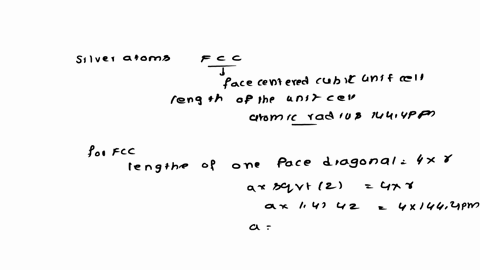 Silver atoms FCC
face centered cubic unit cell
length of the unit cell
atomic radius 144.4pm
for FCC
lengthe of one face diagonal = 4 x r
a x sqrt (2) = 4 x r
a x 1.4142 = 4 x 144.4pm
a =